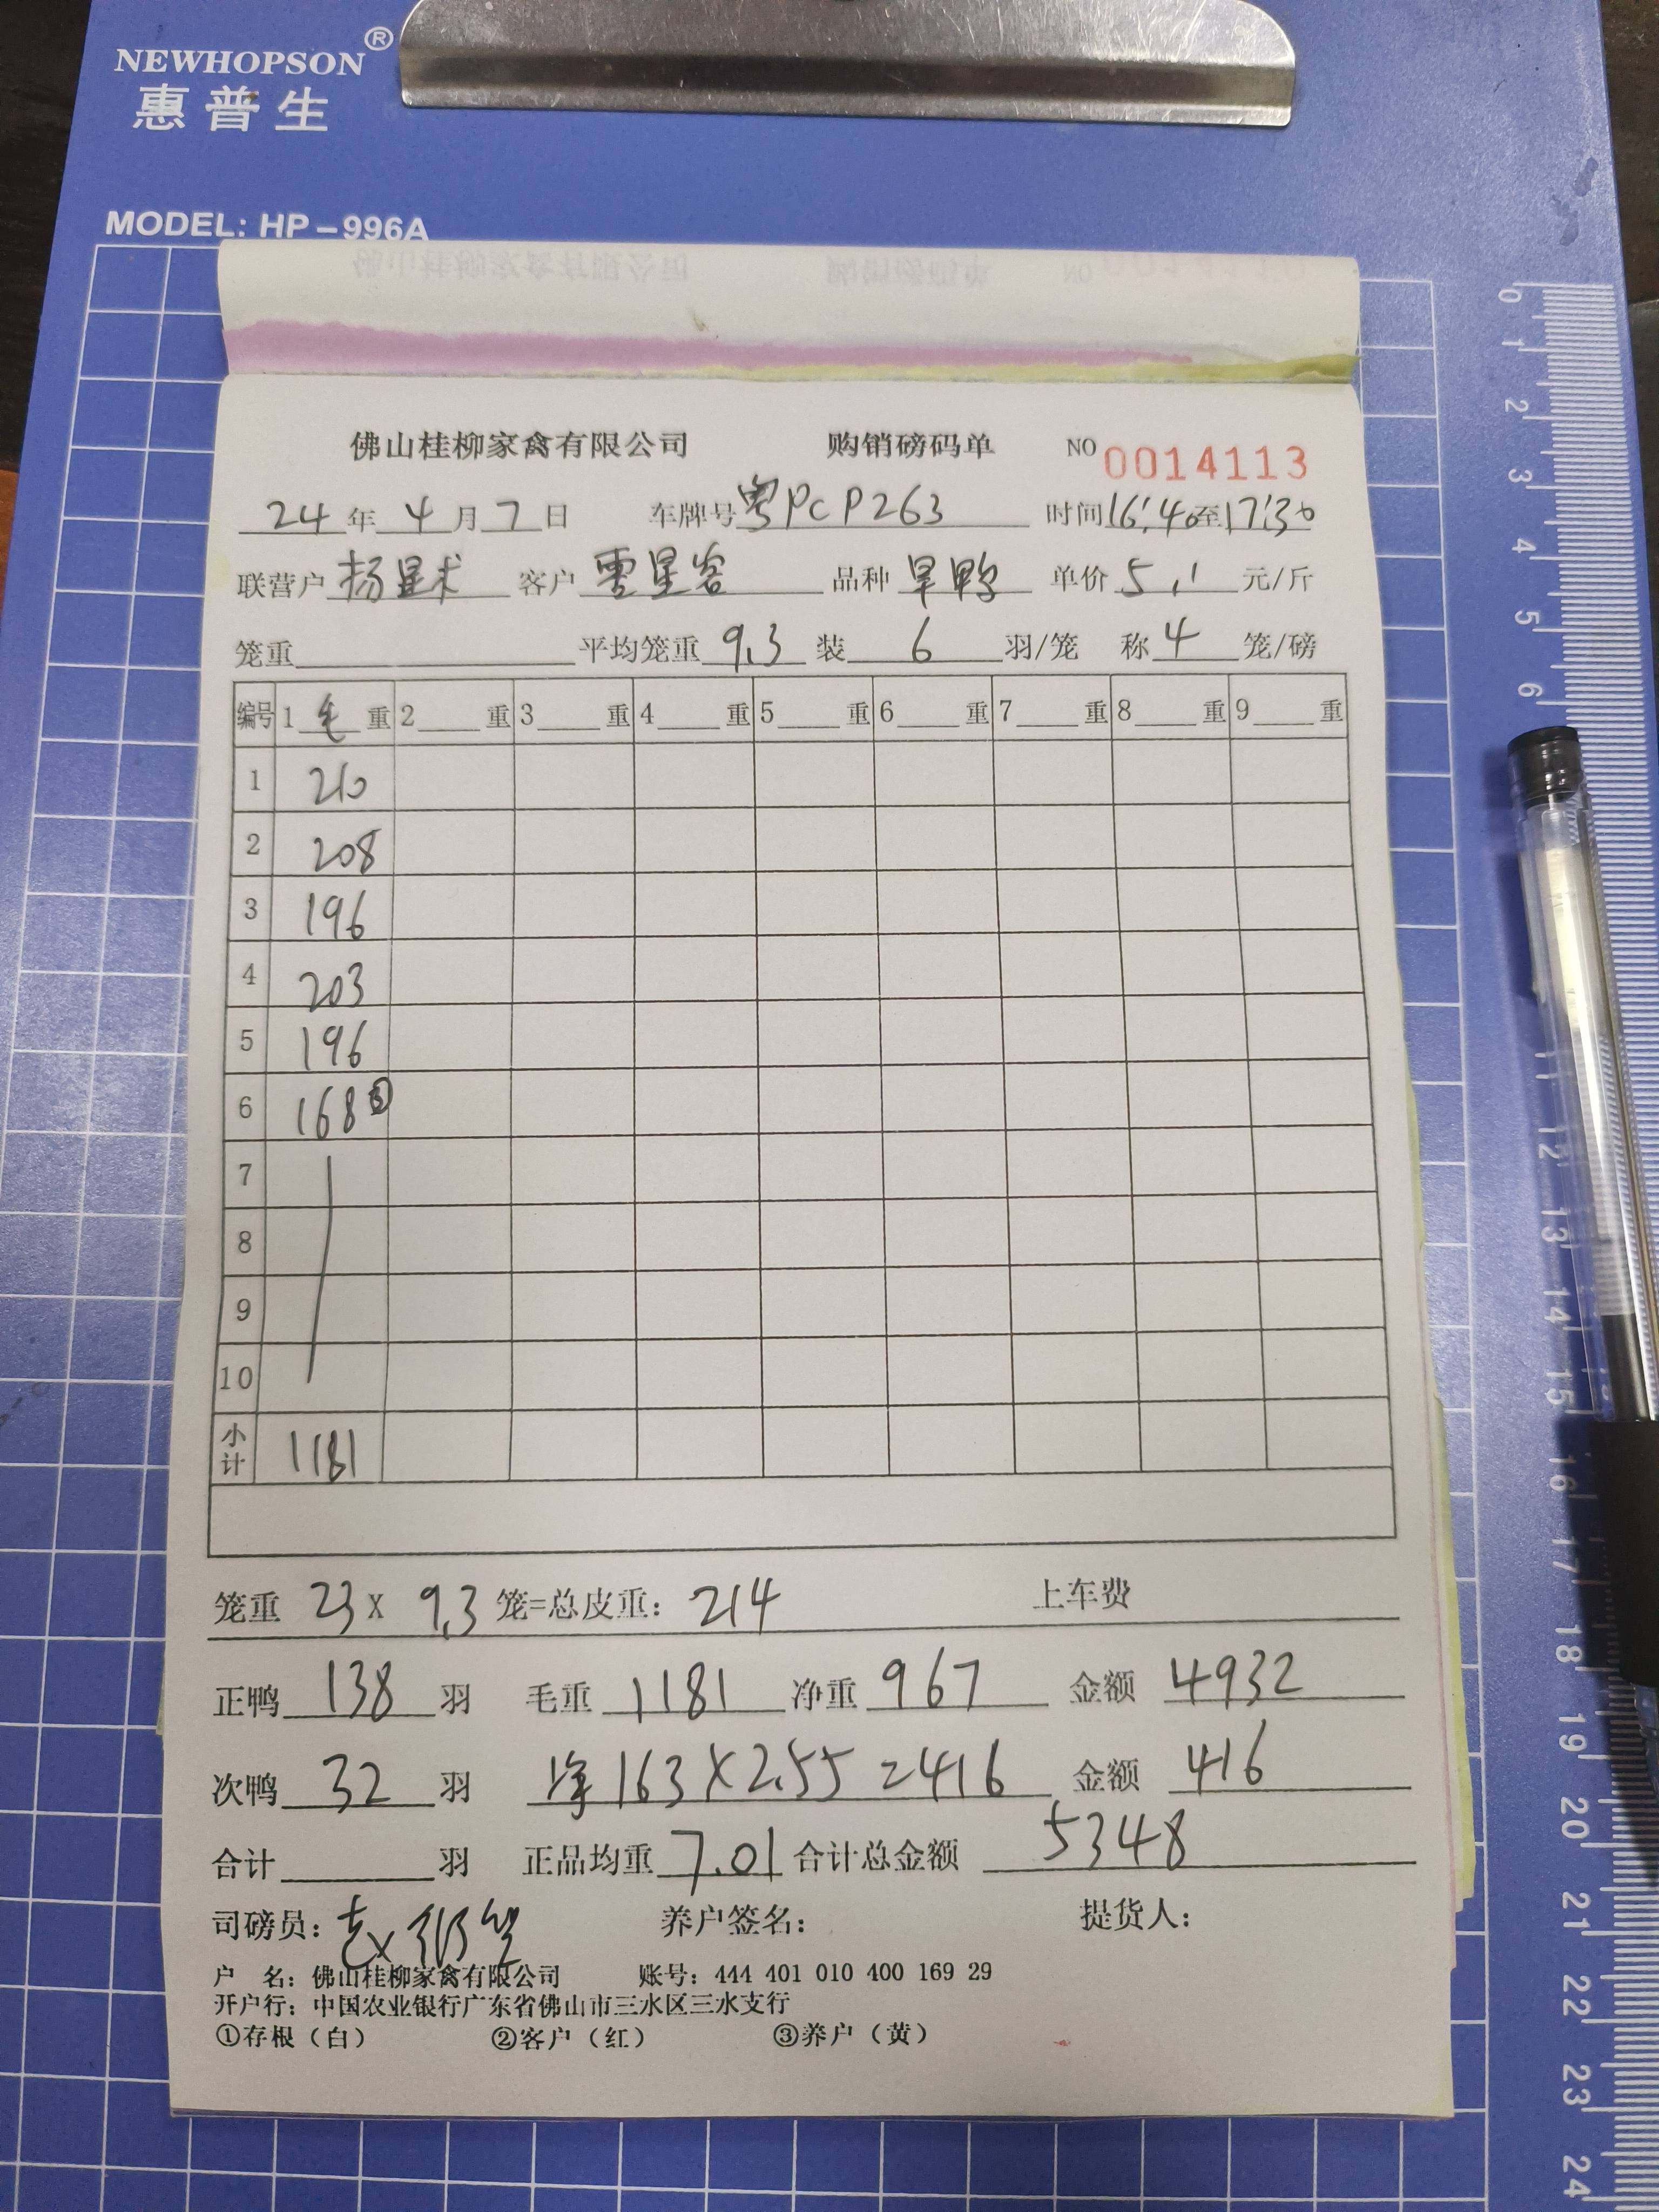 NEWHOPSON®
惠普生
MODEL: HP-996A
佛山桂柳家禽有限公司 购销磅码单 NO 0014113
24年4月7日 车牌号粤PCP263 时间16:40至17:30
联营户 杨星术 客户 零星客 品种 旱鸭 单价 5.1 元/斤
笼重 平均笼重 9.3 装 6 羽/笼 称 4 笼/磅
编号 1毛重 2重 3重 4重 5重 6重 7重 8重 9重
1 210
2 208
3 196
4 203
5 196
6 168 ③
7
8
9
10
小计 1181
笼重 23 X 9.3 笼=总皮重: 214 上车费
正鸭 138 羽 毛重 1181 净重 967 金额 4932
次鸭 32 羽 净163X2.55=416 金额 416
合计 羽 正品均重 7.01 合计总金额 5348
司磅员: 养户签名: 提货人:
户 名: 佛山桂柳家禽有限公司 账号: 444 401 010 400 169 29
开户行: 中国农业银行广东省佛山市三水区三水支行
①存根（白） ②客户（红） ③养户（黄）
0
1
2
3
4
5
6
11
12
13
14
15
16
17
18
19
20
21
22
23
24